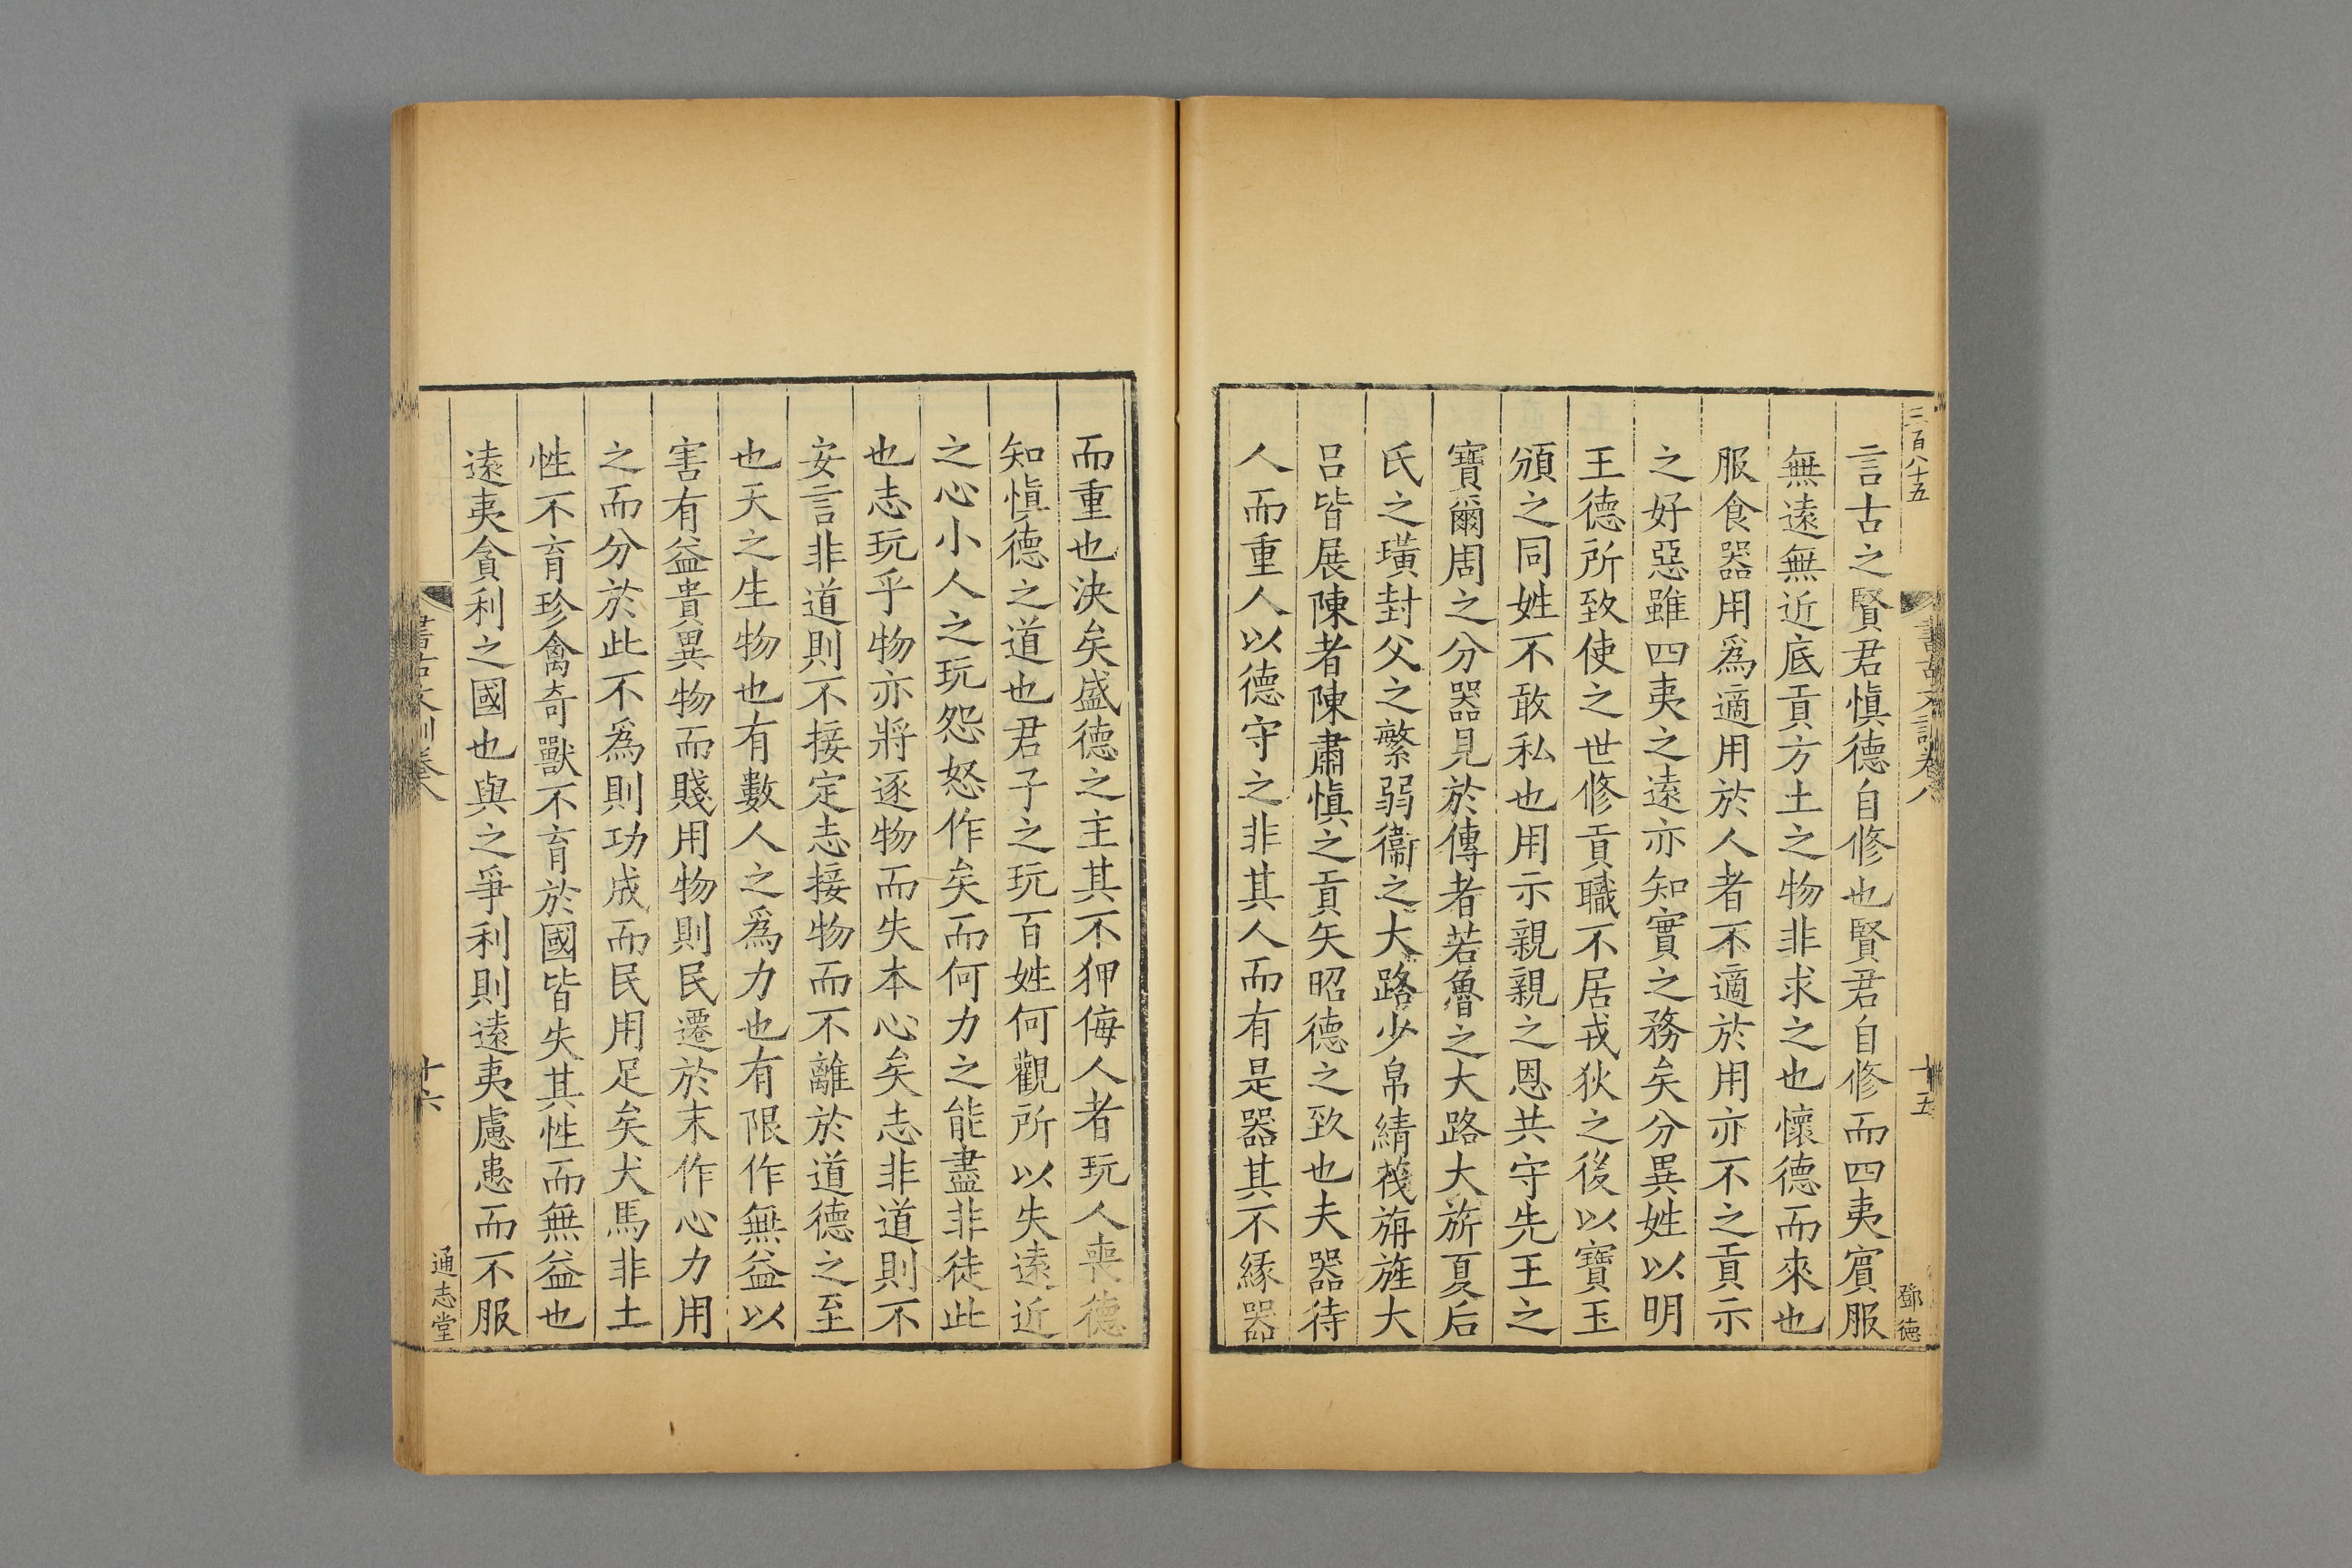 三百八十五
書古文訓卷八
十五
鄧德
言古之賢君慎德自修也賢君自修而四夷賓服
無遠無近底貢方土之物非求之也懷德而來也
服食器用爲適用於人者不適於用亦不之貢示
之好惡雖四夷之遠亦知實之務矣分異姓以明
王德所致使之世修貢職不居戎狄之後以寶玉
頒之同姓不敢私也用示親親之恩共守先王之
寶爾周之分器見於傳者若魯之大路大旂夏后
氏之璜封父之繁弱衞之大路少帛綪茷旃旌大
呂皆展陳者陳肅慎之貢矢昭德之致也夫器待
人而重人以德守之非其人而有是器其不緣器
而重也決矣盛德之主其不狎侮人者玩人喪德
知慎德之道也君子之玩百姓何觀所以失遠近
之心小人之玩怨怒作矣而何力之能盡非徒此
也志玩乎物亦將逐物而失本心矣志非道則不
安言非道則不接定志接物而不離於道德之至
也天之生物也有數人之爲力也有限作無益以
害有益貴異物而賤用物則民遷於末作心力用
之而分於此不爲則功成而民用足矣犬馬非土
性不育珍禽奇獸不育於國皆失其性而無益也
遠夷貪利之國也與之爭利則遠夷慮患而不服
書古文訓卷八
十六
通志堂